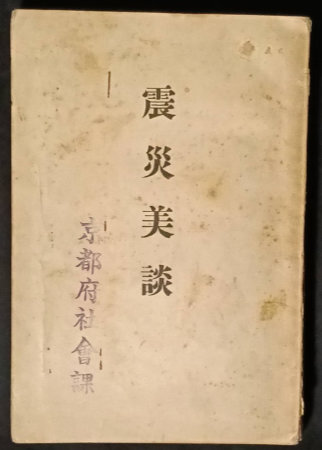 震災美談
京都府社會課